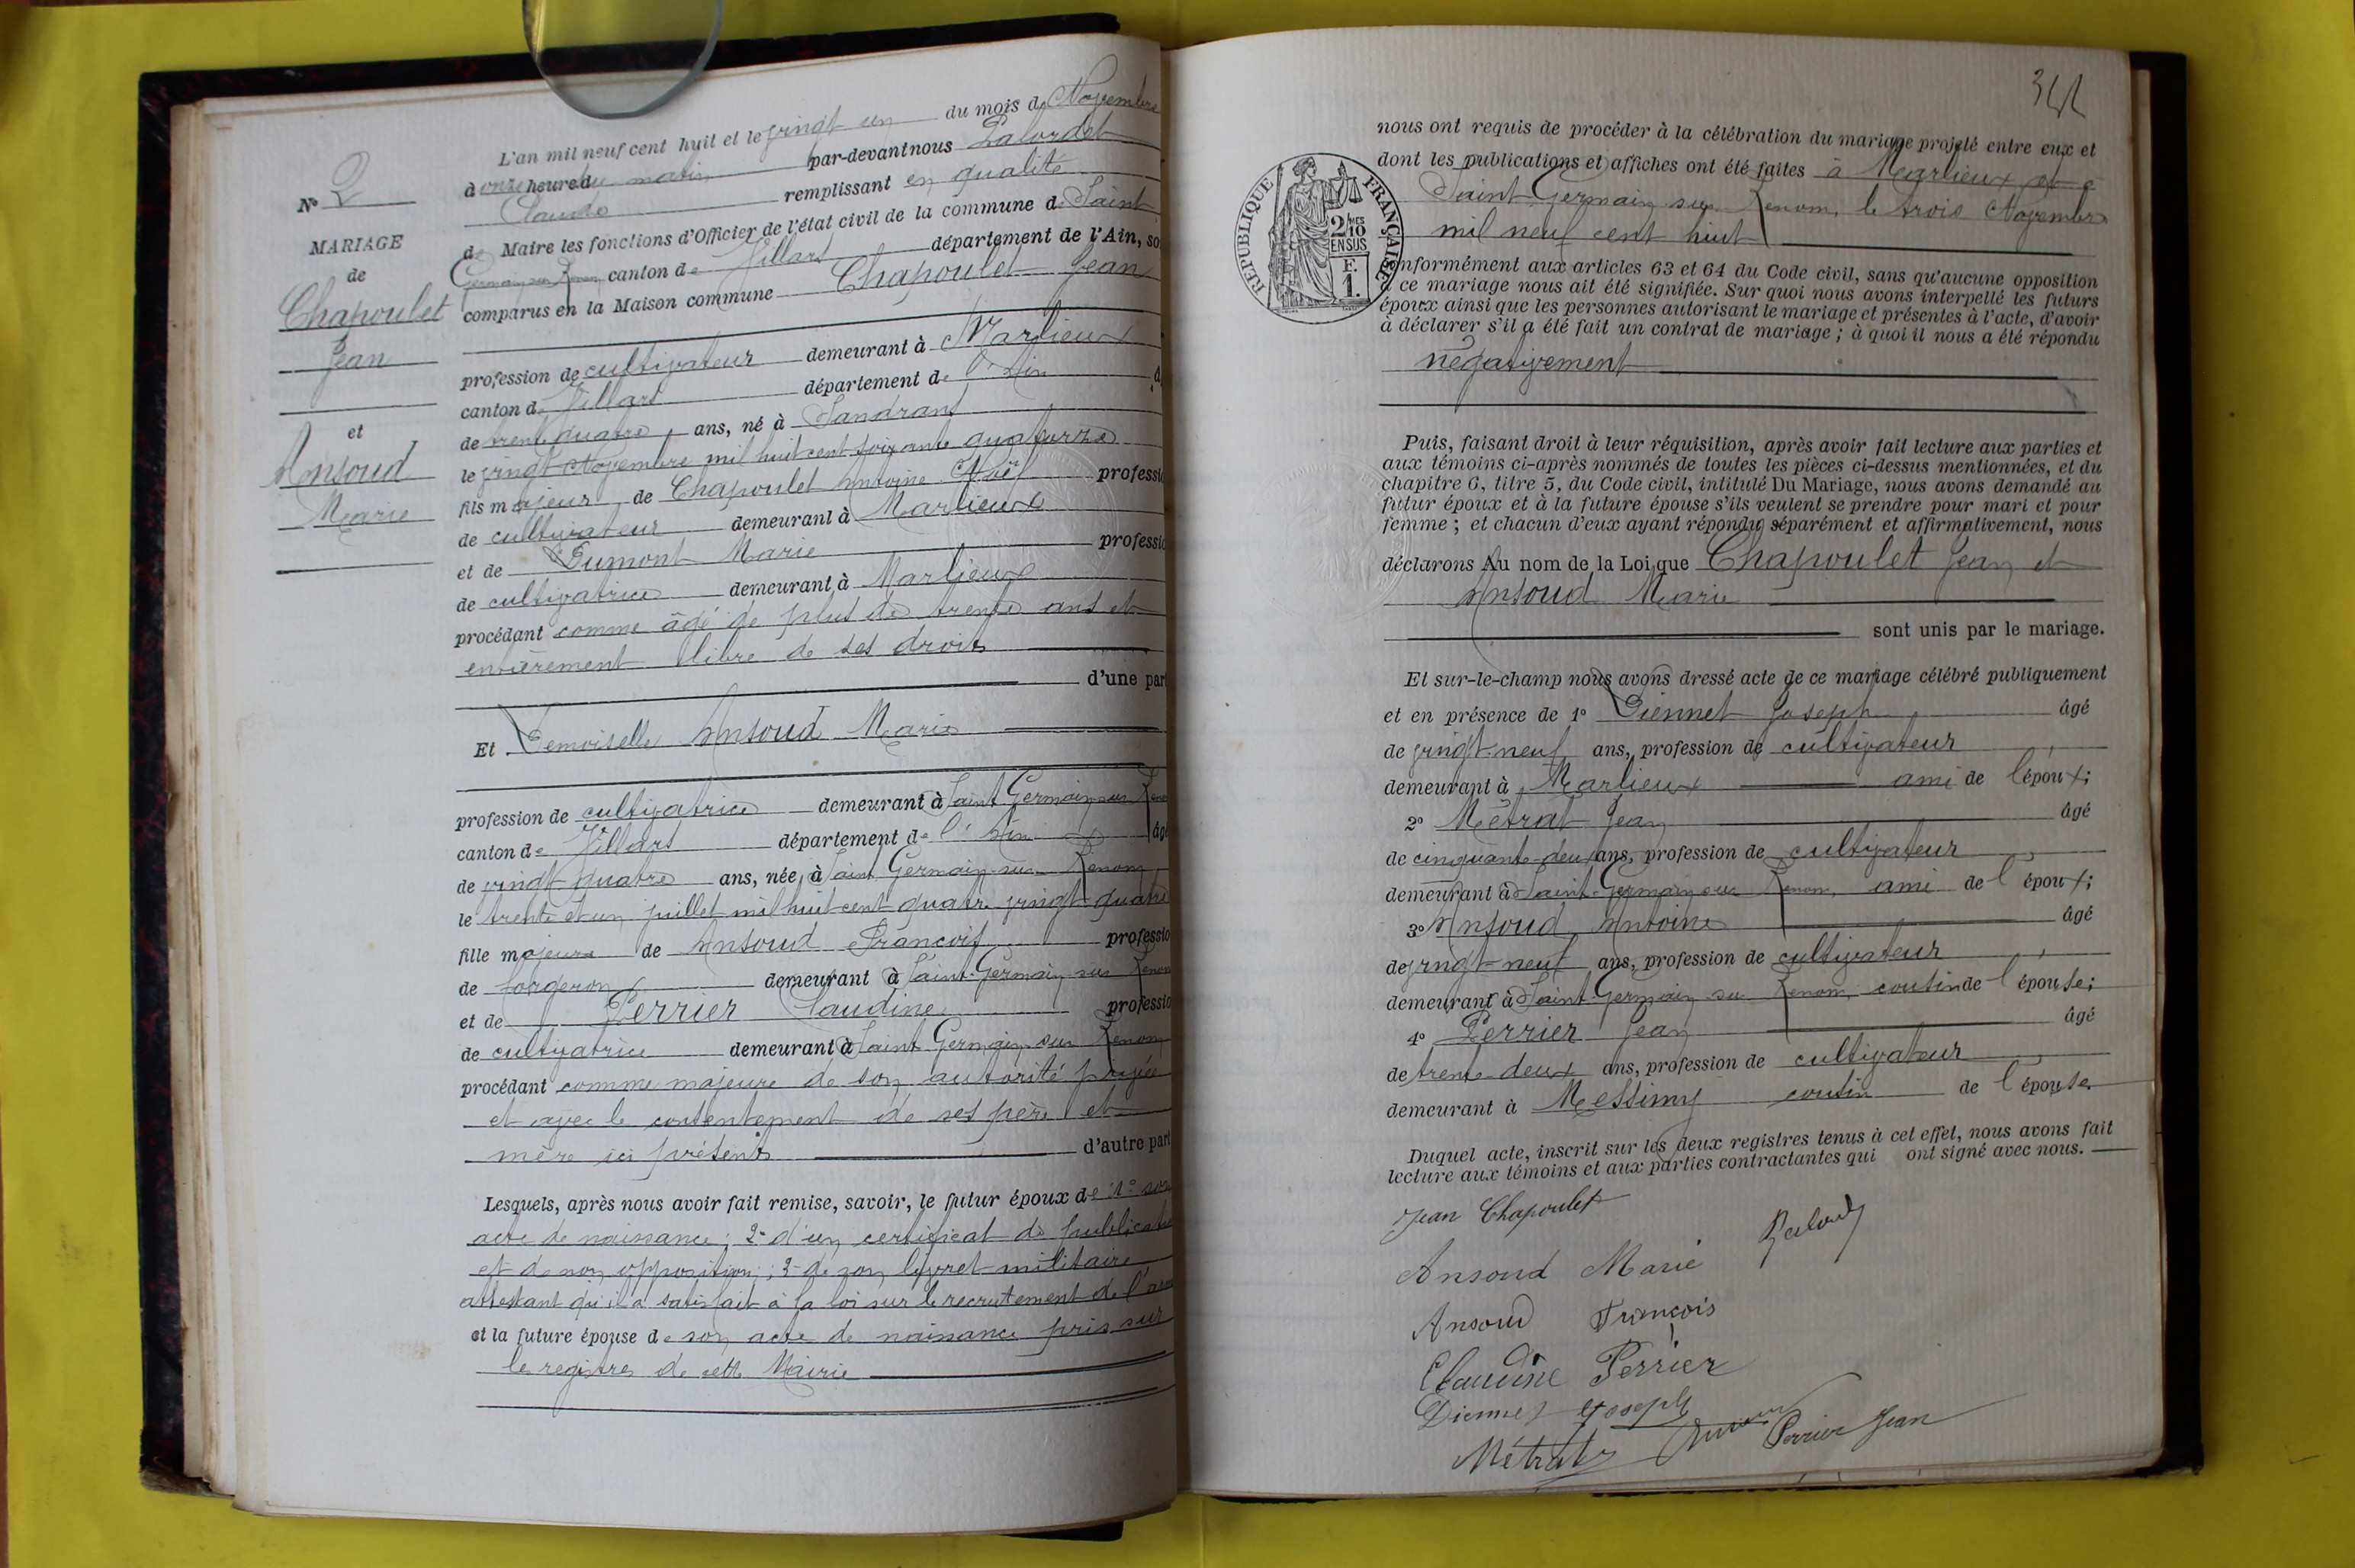 L'an mil neuf cent huit et le vingt un du mois de Novembre
à onze heure du matin par-devant nous
Claude remplissant en qualité
de Maire les fonctions d'Officier de l'état civil de la commune de Saint
Germain sur Renom canton de Villars département de l'Ain, so
comparus en la Maison commune Chapoulet Jean
profession de cultivateur demeurant à Marlieux
canton de Villars département de l'Ain
de trente quatre ans, né à Sandrans
le vingt Novembre mil huit cent soixante quatorze
fils majeur de Chapoulet Antoine Noël professio
de cultivateur demeurant à Marlieux
et de Dumont Marie professio
de cultivatrice demeurant à Marlieux
procédant comme âgé de plus de trente ans et
entièrement libre de ses droits
d'une part
Et Demoiselle Ansoud Marie
profession de cultivatrice demeurant à Saint Germain sur Renom
canton de Villars département de l'Ain âgé
de vingt quatre ans, née à Saint Germain sur Renom
le trente et un juillet mil huit cent quatre vingt quatre
fille majeure de Ansoud François professio
de forgeron demeurant à Saint Germain sur Renom
et de Perrier Claudine professio
de cultivatrice demeurant à Saint Germain sur Renom
procédant comme majeure de son autorité privée
et avec le consentement de ses père et
mère ici présents d'autre part
Lesquels, après nous avoir fait remise, savoir, le futur époux de 1° son
acte de naissance; 2° d'un certificat de publication
et de non opposition; 3° de son livret militaire
attestant qu'il a satisfait à la loi sur le recrutement de l'ar
et la future épouse de son acte de naissance pris sur
les registres de cette Mairie
N° 2
MARIAGE
de
Chapoulet
Jean
et
Ansoud
Marie
nous ont requis de procéder à la célébration du mariage projeté entre eux et
dont les publications et affiches ont été faites à Marlieux et à
Saint Germain sur Renom, le trois Novembre
mil neuf cent huit
RÉPUBLIQUE FRANÇAISE
2/10
EN SUS
F.
1.
onformément aux articles 63 et 64 du Code civil, sans qu'aucune opposition
à ce mariage nous ait été signifiée. Sur quoi nous avons interpellé les futurs
époux ainsi que les personnes autorisant le mariage et présentes à l'acte, d'avoir
à déclarer s'il a été fait un contrat de mariage ; à quoi il nous a été répondu
négativement
Puis, faisant droit à leur réquisition, après avoir fait lecture aux parties et
aux témoins ci-après nommés de toutes les pièces ci-dessus mentionnées, et du
chapitre 6, titre 5, du Code civil, intitulé Du Mariage, nous avons demandé au
futur époux et à la future épouse s'ils veulent se prendre pour mari et pour
femme ; et chacun d'eux ayant répondu séparément et affirmativement, nous
déclarons Au nom de la Loi que Chapoulet Jean et
Ansoud Marie
sont unis par le mariage.
Et sur-le-champ nous avons dressé acte de ce mariage célébré publiquement
et en présence de 1° Diennet Joseph âgé
de vingt-neuf ans, profession de cultivateur,
demeurant à Marlieux ami de l'époux;
2° Métrat Jean âgé
de cinquante-deux ans, profession de cultivateur,
demeurant à Saint-Germain sur Renom, ami de l'époux;
3° Ansoud Antoine âgé
de vingt-neuf ans, profession de cultivateur,
demeurant à Saint-Germain su Renom, cousin de l'épouse;
4° Perrier Jean âgé
de trente-deux ans, profession de cultivateur,
demeurant à Messimy cousin de l'épouse.
Duquel acte, inscrit sur les deux registres tenus à cet effet, nous avons fait
lecture aux témoins et aux parties contractantes qui ont signé avec nous.
Jean Chapoulet
Ansoud Marie
Ansoud François
Claudine Perrier
Diennet Joseph
Métrat Perrier Jean